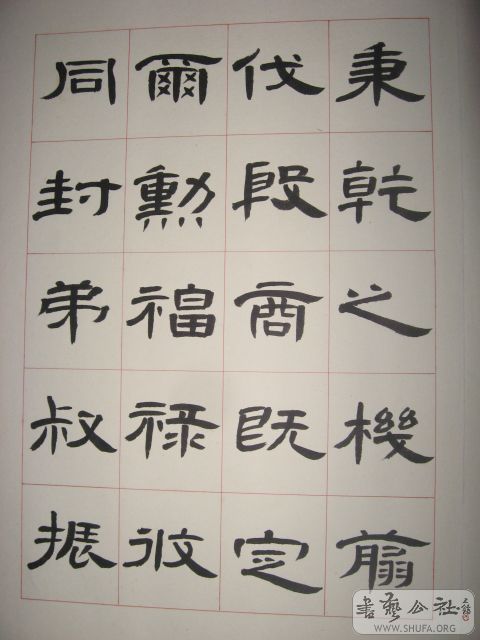 秉乾之機翦
伐殷商既定
爾勳福祿攸
同封弟叔振
書藝公社
WWW.SHUFA.ORG